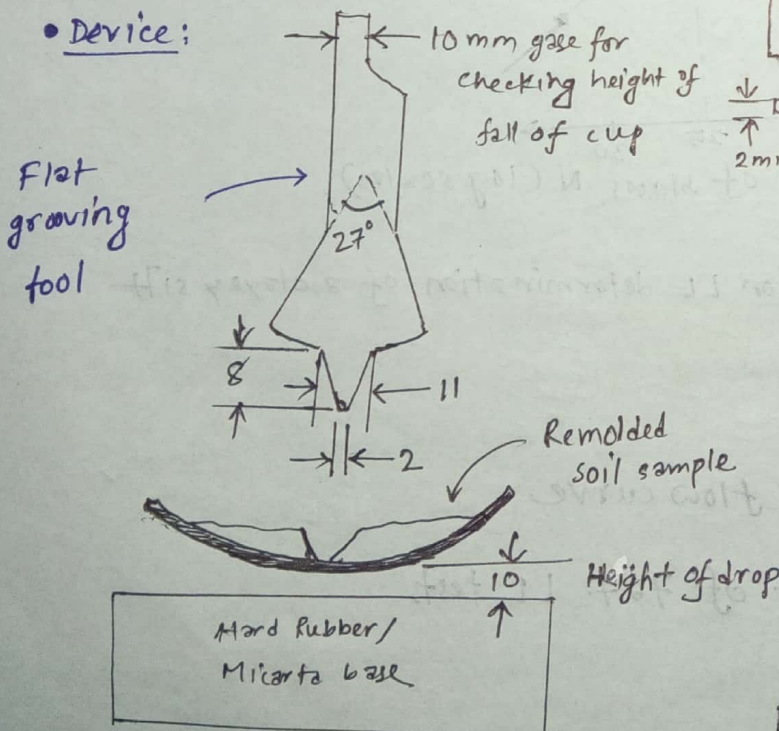 • Device:
10 mm gase for
checking height of
fall of cup
2m
Flat
grooving
tool
27°
8
11
2
Remolded
soil sample
10
Height of drop
Hard Rubber/
Micarta base